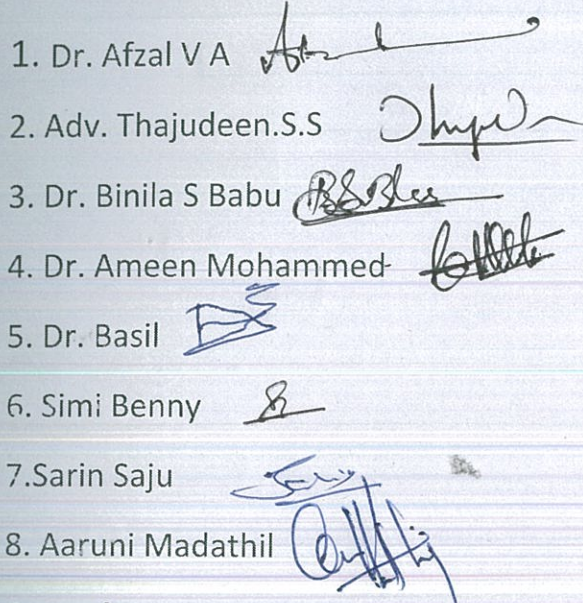 1. Dr. Afzal V A
2. Adv. Thajudeen.S.S
3. Dr. Binila S Babu
4. Dr. Ameen Mohammed-
5. Dr. Basil
6. Simi Benny
7.Sarin Saju
8. Aaruni Madathil